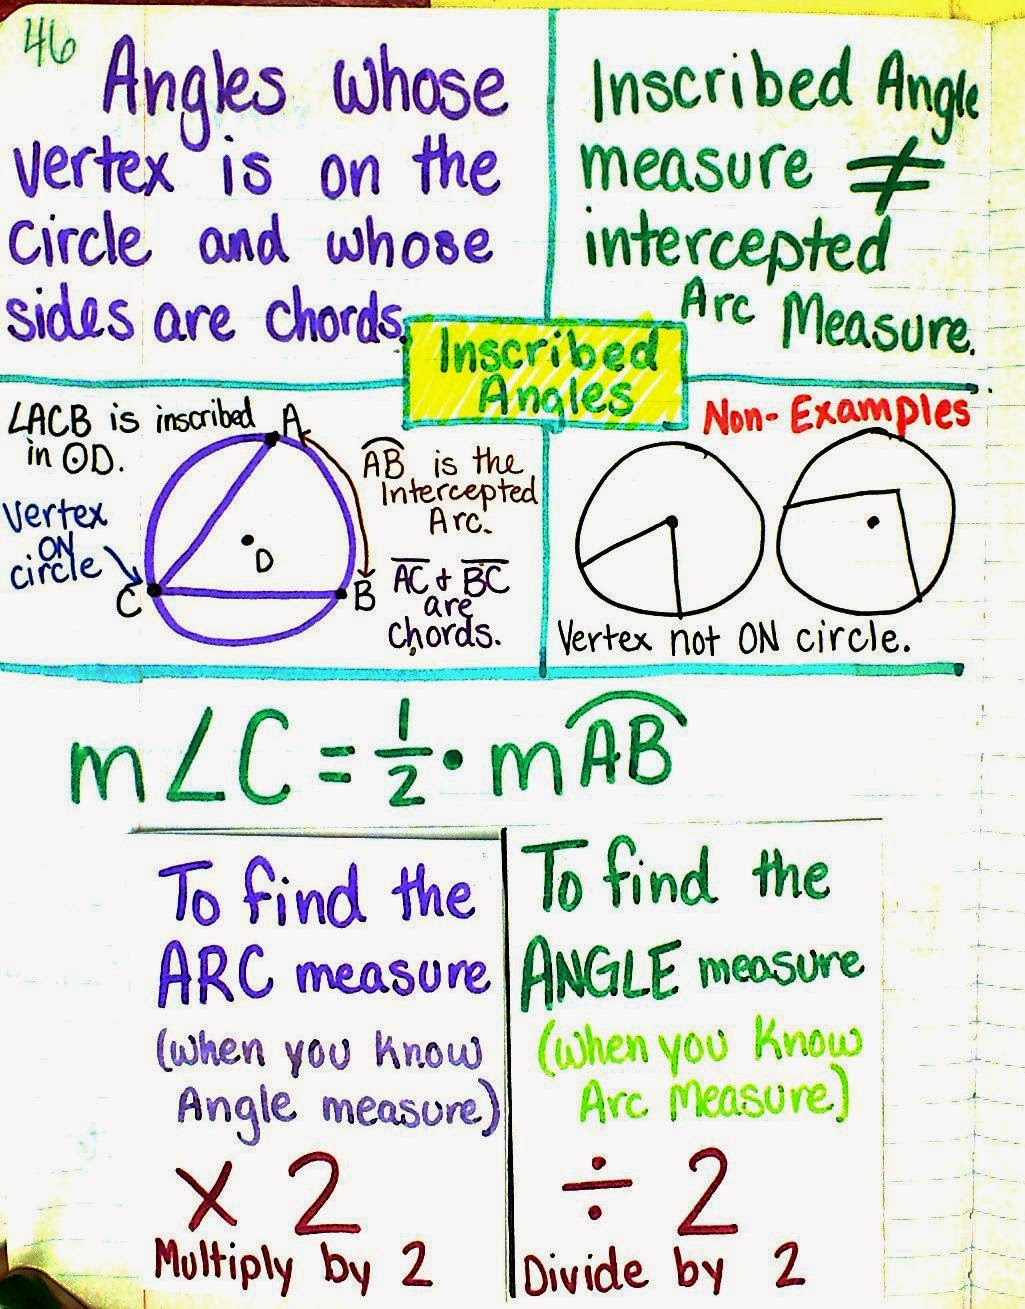 46
Angles whose
vertex is on the
Circle and whose
sides are chords.
Inscribed Angle
measure ≠
intercepted
Arc Measure.
Inscribed
Angles
∠ACB is inscribed
in ⊙D.
Vertex
ON
circle
A
D
C
B
AB is the
Intercepted
Arc.
AC + BC
are
chords.
Non-Examples
Vertex not ON circle.
m∠C = 1/2 · mAB
To find the
ARC measure
(when you know
Angle measure)
x 2
Multiply by 2
To find the
ANGLE measure
(when you know
Arc Measure)
÷ 2
Divide by 2